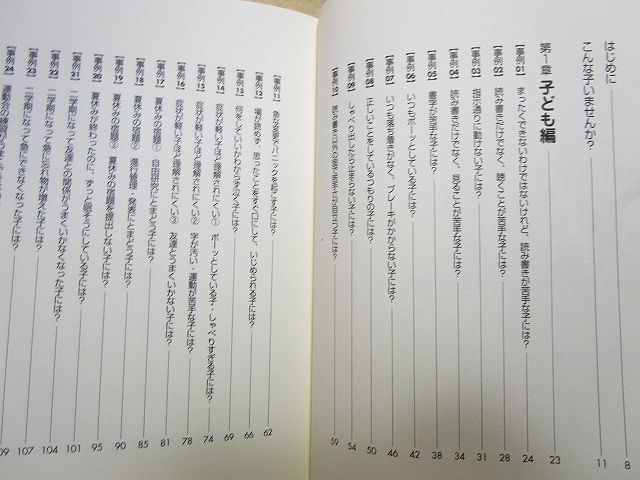 はじめに 8
こんな子いませんか？ 11
第1章 子ども編 23
【事例01】 まったくできないわけではないけれど、読み書きが苦手な子には？ 24
【事例02】 読み書きだけでなく、聴くことが苦手な子には？ 28
【事例03】 指示通りに動けない子には？ 31
【事例04】 読み書きだけでなく、見ることが苦手な子には？ 34
【事例05】 書字が苦手な子には？ 38
【事例06】 いつもボーッとしている子には？ 42
【事例07】 いつも落ち着きがなく、ブレーキがかからない子には？ 46
【事例08】 正しいことをしているつもりの子には？ 50
【事例09】 しゃべり出したら止まらない子には？ 54
【事例10】 読み書き以外の面で苦手さが目立つ子には？ 59
【事例11】 急な変更でパニックを起こす子には？ 62
【事例12】 場が読めず、思ったことをすぐ口にして、いじめられる子には？ 66
【事例13】 何をしていいかわからず泣く子には？ 69
【事例14】 症状が軽い子ほど理解されにくい① ボーッとしている子・しゃべりすぎる子には？ 74
【事例15】 症状が軽い子ほど理解されにくい② 字が汚い・運動が苦手な子には？ 78
【事例16】 症状が軽い子ほど理解されにくい③ 友達とうまくいかない子には？ 81
【事例17】 夏休みの宿題① 自由研究にとまどう子には？ 85
【事例18】 夏休みの宿題② 進行管理・発表にとまどう子には？ 90
【事例19】 夏休みの宿題③ 夏休みの宿題を提出しない子には？ 95
【事例20】 夏休みが終わったのに、ずっと眠そうにしている子には？
【事例21】 二学期になって友達との関係がうまくいかなくなった子には？ 101
【事例22】 二学期になって急に忘れ物が増えた子には？ 104
【事例23】 二学期になって急にできなくなった子には？ 107
【事例24】 運動会の練習が 09